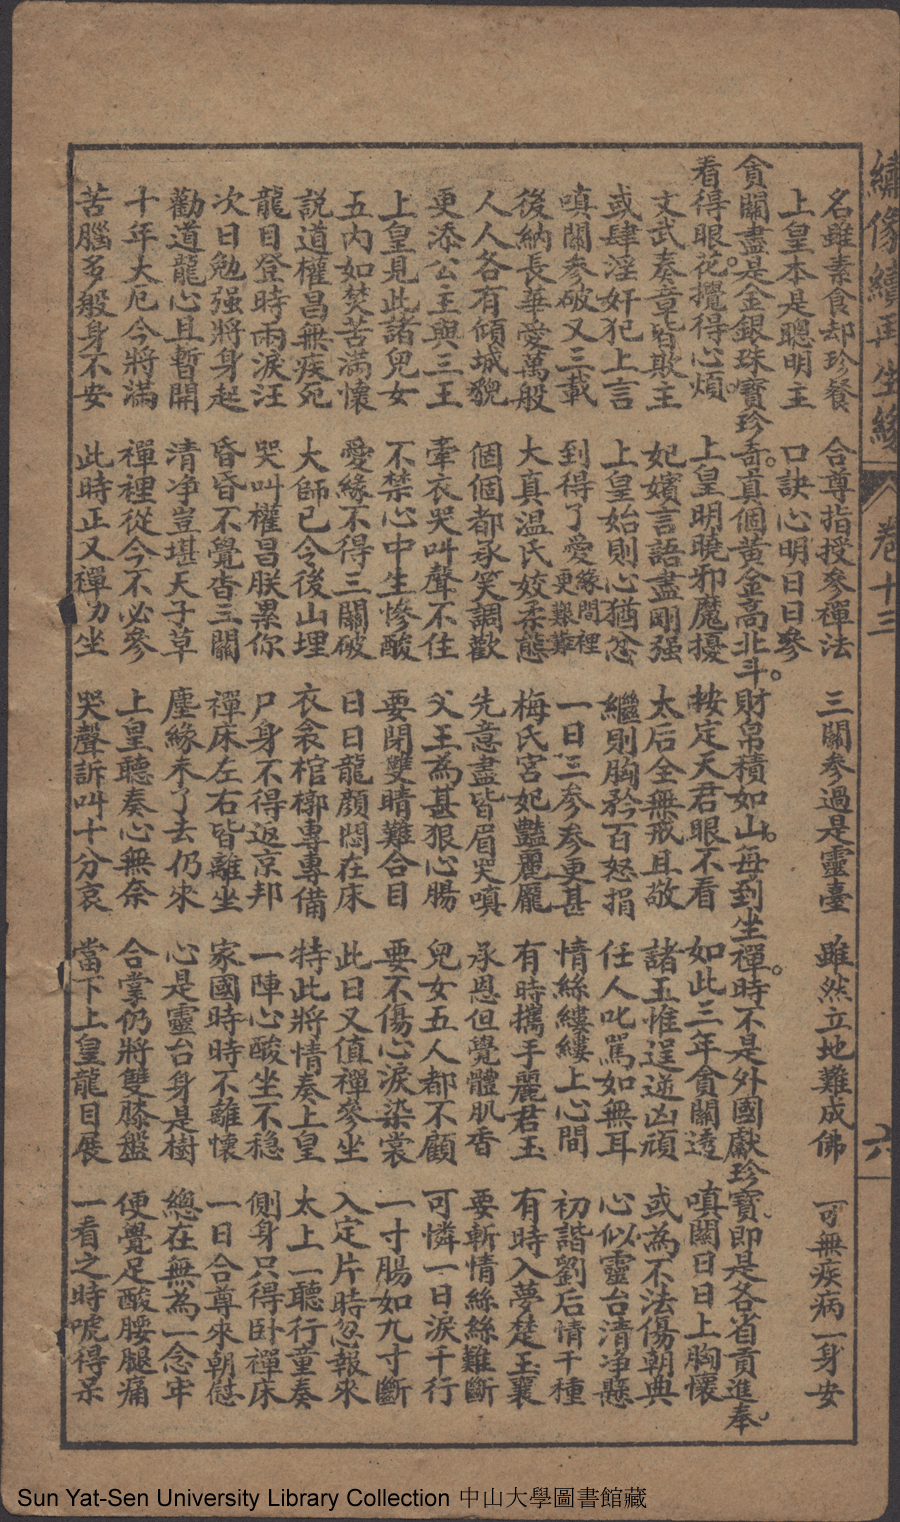 繡像續再生緣 卷十三 六
名雖素食却珍餐 合尊指授參禪法 三關參過是靈臺 雖然立地難成佛 可無疾病一身安
上皇本是聰明主 口訣心明日日參
貪關盡是金銀珠寶珍奇。真個黃金高北斗。財帛積如山。每到坐禪。時不是外國獻珍寶、即是各省貢進奉、
看得眼花。攪得心煩。 上皇明曉邪魔擾 按定天君眼不看 如此三年貪關遠 嗔關日日上胸懷
文武奏章皆欺主 妃嬪言語盡剛强 太后全無戒且敬 諸王惟逞逆凶頑 或為不法傷朝典
或肆淫奸犯上言 上皇始則心猶忿 繼則胸矜百怒捐 任人叱罵如無耳 心似靈台清淨懸
嗔關參破又三載 到得了愛緣間裡更艱難 一日三參參更甚 情絲縷縷上心間 初諧劉后情千種
後納長華愛萬般 大真温氏姣柔態 梅氏宮妃豔麗龐 有時攜手麗君玉 有時入夢楚王襄
人人各有傾城貌 個個都承笑調歡 先意盡皆眉哭嗔 承恩但覺體肌香 要斬情絲絲難斷
更添公主與三王 牽衣哭叫聲不住 父王為甚狠心腸 兒女五人都不顧 可憐一日淚千行
上皇見此諸兒女 不禁心中生慘酸 要閉雙睛難合目 要不傷心淚染裳 一寸腸如九寸斷
五內如焚苦滿懷 愛緣不得三關破 日日龍顏悶在床 此日又值禪參坐 入定片時忽報來
説道權昌無疾死 大師已令後山埋 衣衾棺槨專專備 特此將情奏上皇 太上一聽行童奏
龍目登時兩淚汪 哭叫權昌朕累你 尸身不得返京邦 一陣心酸坐不稳 側身只得卧禪床
次日勉强將身起 昏昏不覺杳三關 禪床左右皆離坐 家國時時不離懷 一日合尊來朝慰
勸道龍心且暫開 清净豈堪天子草 塵緣未了去仍來 心是靈台身是樹 總在無為一念牢
十年大厄今將滿 禪裡從今不必參 上皇聽奏心無奈 合掌仍將雙膝盤 便覺足酸腰腿痛
苦腦多般身不安 此時正又禪功坐 哭聲訴叫十分哀 當下上皇龍目展 一看之時唬得呆
Sun Yat-Sen University Library Collection 中山大學圖書館藏